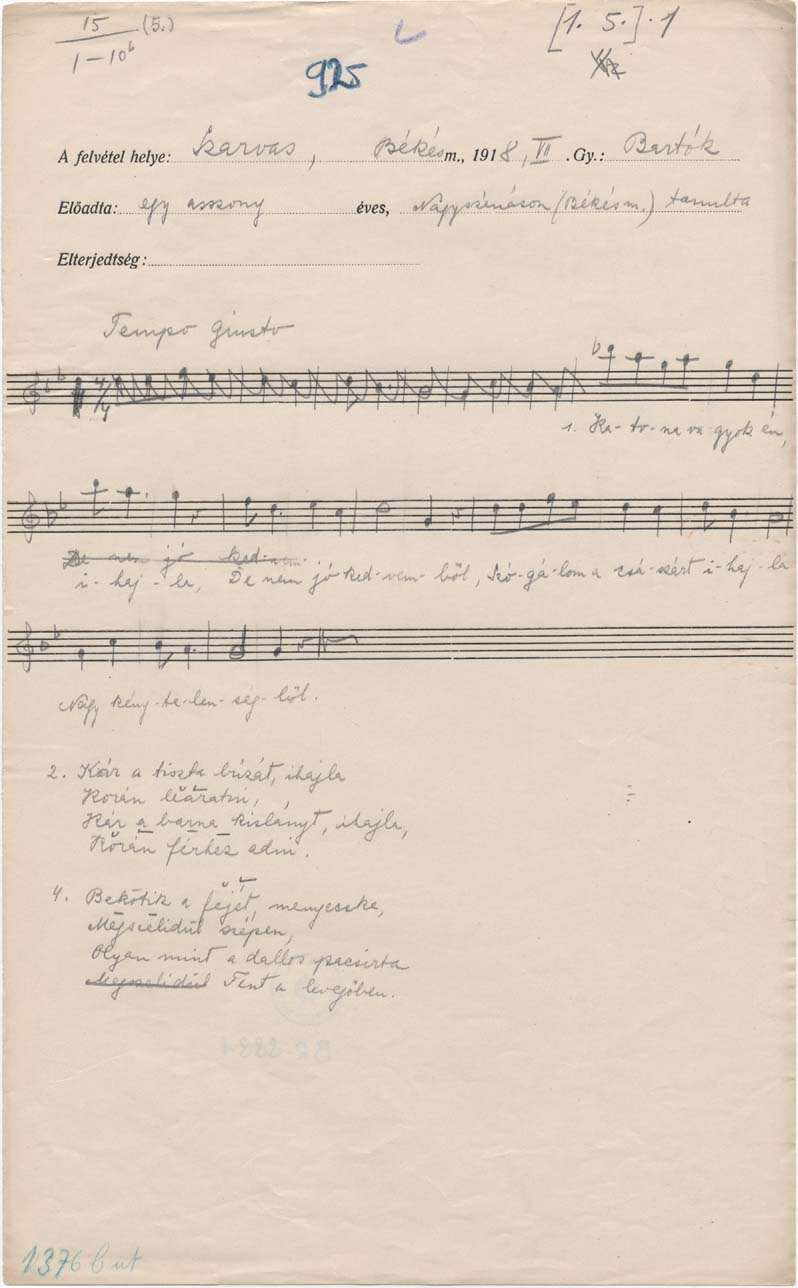 15 (5.)
1-10b
[1. 5.].1
925
A felvétel helye: Szarvas, Békés m., 1918, VII .Gy.: Bartók
Előadta: egy asszony éves, Nagyszénáson (Békés m.) tanulta
Elterjedtség:
Tempo giusto
4/4
1. Ka-to-na va-gyok én,
De nem jó ked-vem-
i-haj-la, De nem jó ked-vem-ből, Szó-gá-lom a csá-szárt i-haj-la
Nagy kény-te-len-ség-ből.
2. Kár a tiszta búzát, ihajla
Korán lëăratni,
Kár a barna kislányt, ihajla,
Korán férhëz adni.
4. Bekötik a fejét, menyecske,
Mëgszelidűl szépen,
Olyan mint a dallos pacsirta
Megszelidül Fent a levegőben.
1376 b ut